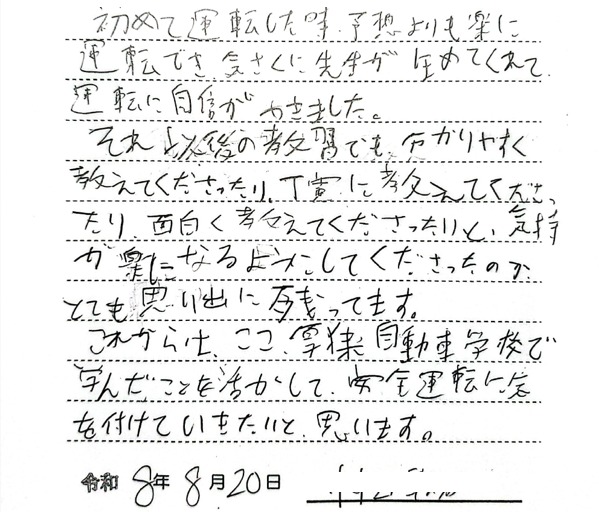 初めて運転した時、予想よりも楽に
運転でき、気さくに先生が 全めてくれて
運転に自信がつきました。
それ以後の教習でも、分かりやすく
教えてくださったり、丁寧に教えてくださっ
たり、面白く教えてくださったりと、気持
が楽になるようにしてくださったのが
とても思い出に残ってます。
これからは、ここ、厚狭自動車学校で
学んだことを活かして、安全運転に気
を付けていきたいと思います。
令和 8年 8月20日